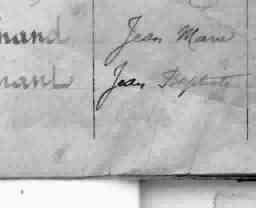 nand Jean Marie
nant Jean Baptiste